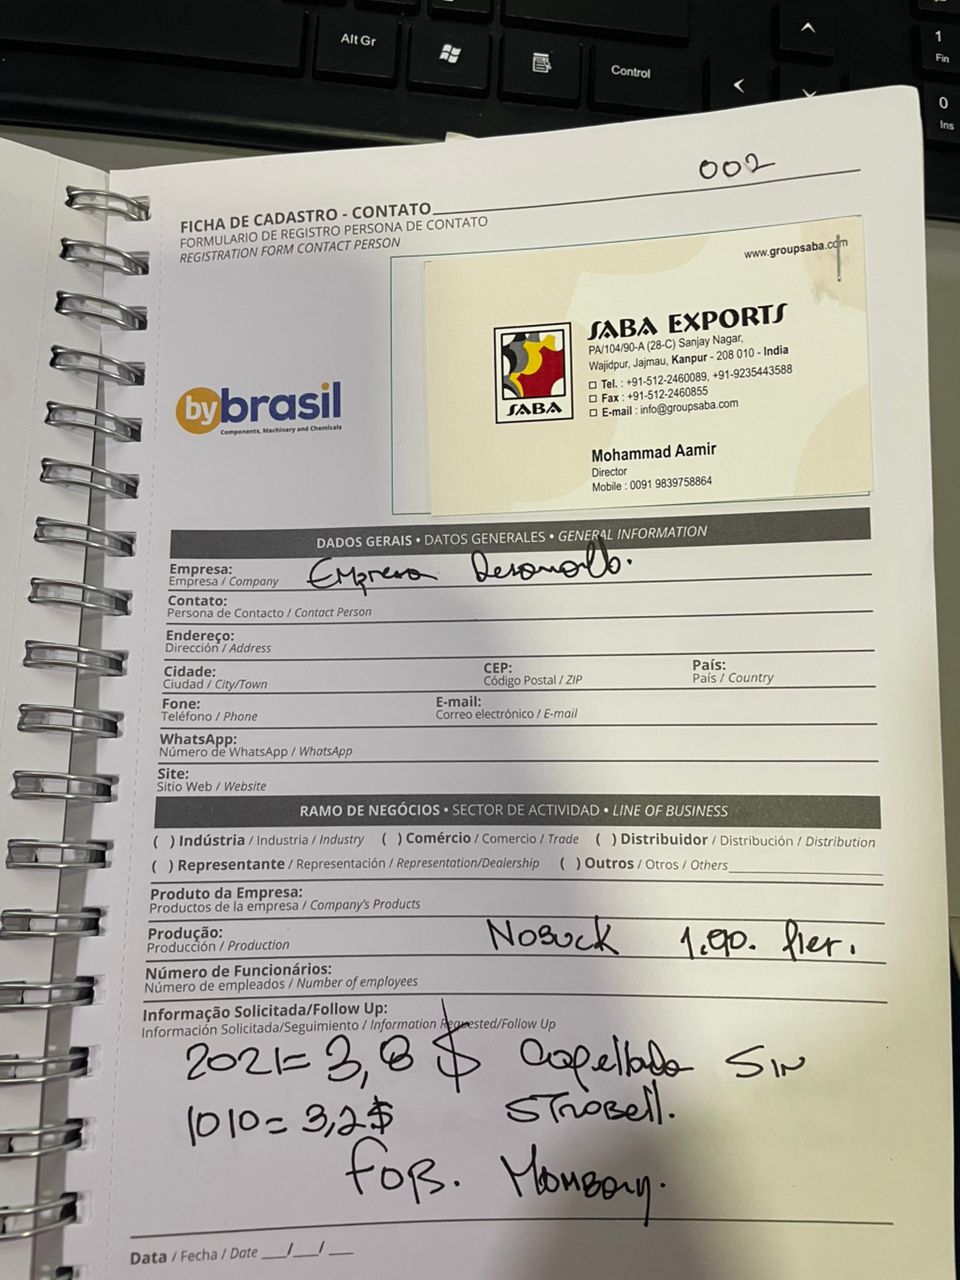 Alt Gr
Control
1
Fin
0
Ins
002
FICHA DE CADASTRO - CONTATO
FORMULARIO DE REGISTRO PERSONA DE CONTATO
REGISTRATION FORM CONTACT PERSON
www.groupsaba.com
SABA EXPORTS
PA/104/90-A (28-C) Sanjay Nagar,
Wajidpur, Jajmau, Kanpur - 208 010 - India
Tel. : +91-512-2460089, +91-9235443588
Fax : +91-512-2460855
E-mail : info@groupsaba.com
SABA
Mohammad Aamir
Director
Mobile : 0091 9839758864
bybrasil
Components, Machinery and Chemicals
DADOS GERAIS • DATOS GENERALES • GENERAL INFORMATION
Empresa: Empresa
Empresa / Company
Contato:
Persona de Contacto / Contact Person
Endereço:
Dirección / Address
Cidade: CEP: País:
Ciudad / City/Town Código Postal / ZIP País / Country
Fone: E-mail:
Teléfono / Phone Correo electrónico / E-mail
WhatsApp:
Número de WhatsApp / WhatsApp
Site:
Sitio Web / Website
RAMO DE NEGÓCIOS • SECTOR DE ACTIVIDAD • LINE OF BUSINESS
( ) Indústria / Industria / Industry ( ) Comércio / Comercio / Trade ( ) Distribuidor / Distribución / Distribution
( ) Representante / Representación / Representation/Dealership ( ) Outros / Otros / Others
Produto da Empresa:
Productos de la empresa / Company's Products
Produção: Nobuck 1.90.
Producción / Production
Número de Funcionários:
Número de empleados / Number of employees
Informação Solicitada/Follow Up:
Información Solicitada/Seguimiento / Information Requested/Follow Up
2021= 3,8 $ Capellada SIN
1010= 3,2$ STROBELL.
FOB.
Data / Fecha / Date __/__/__